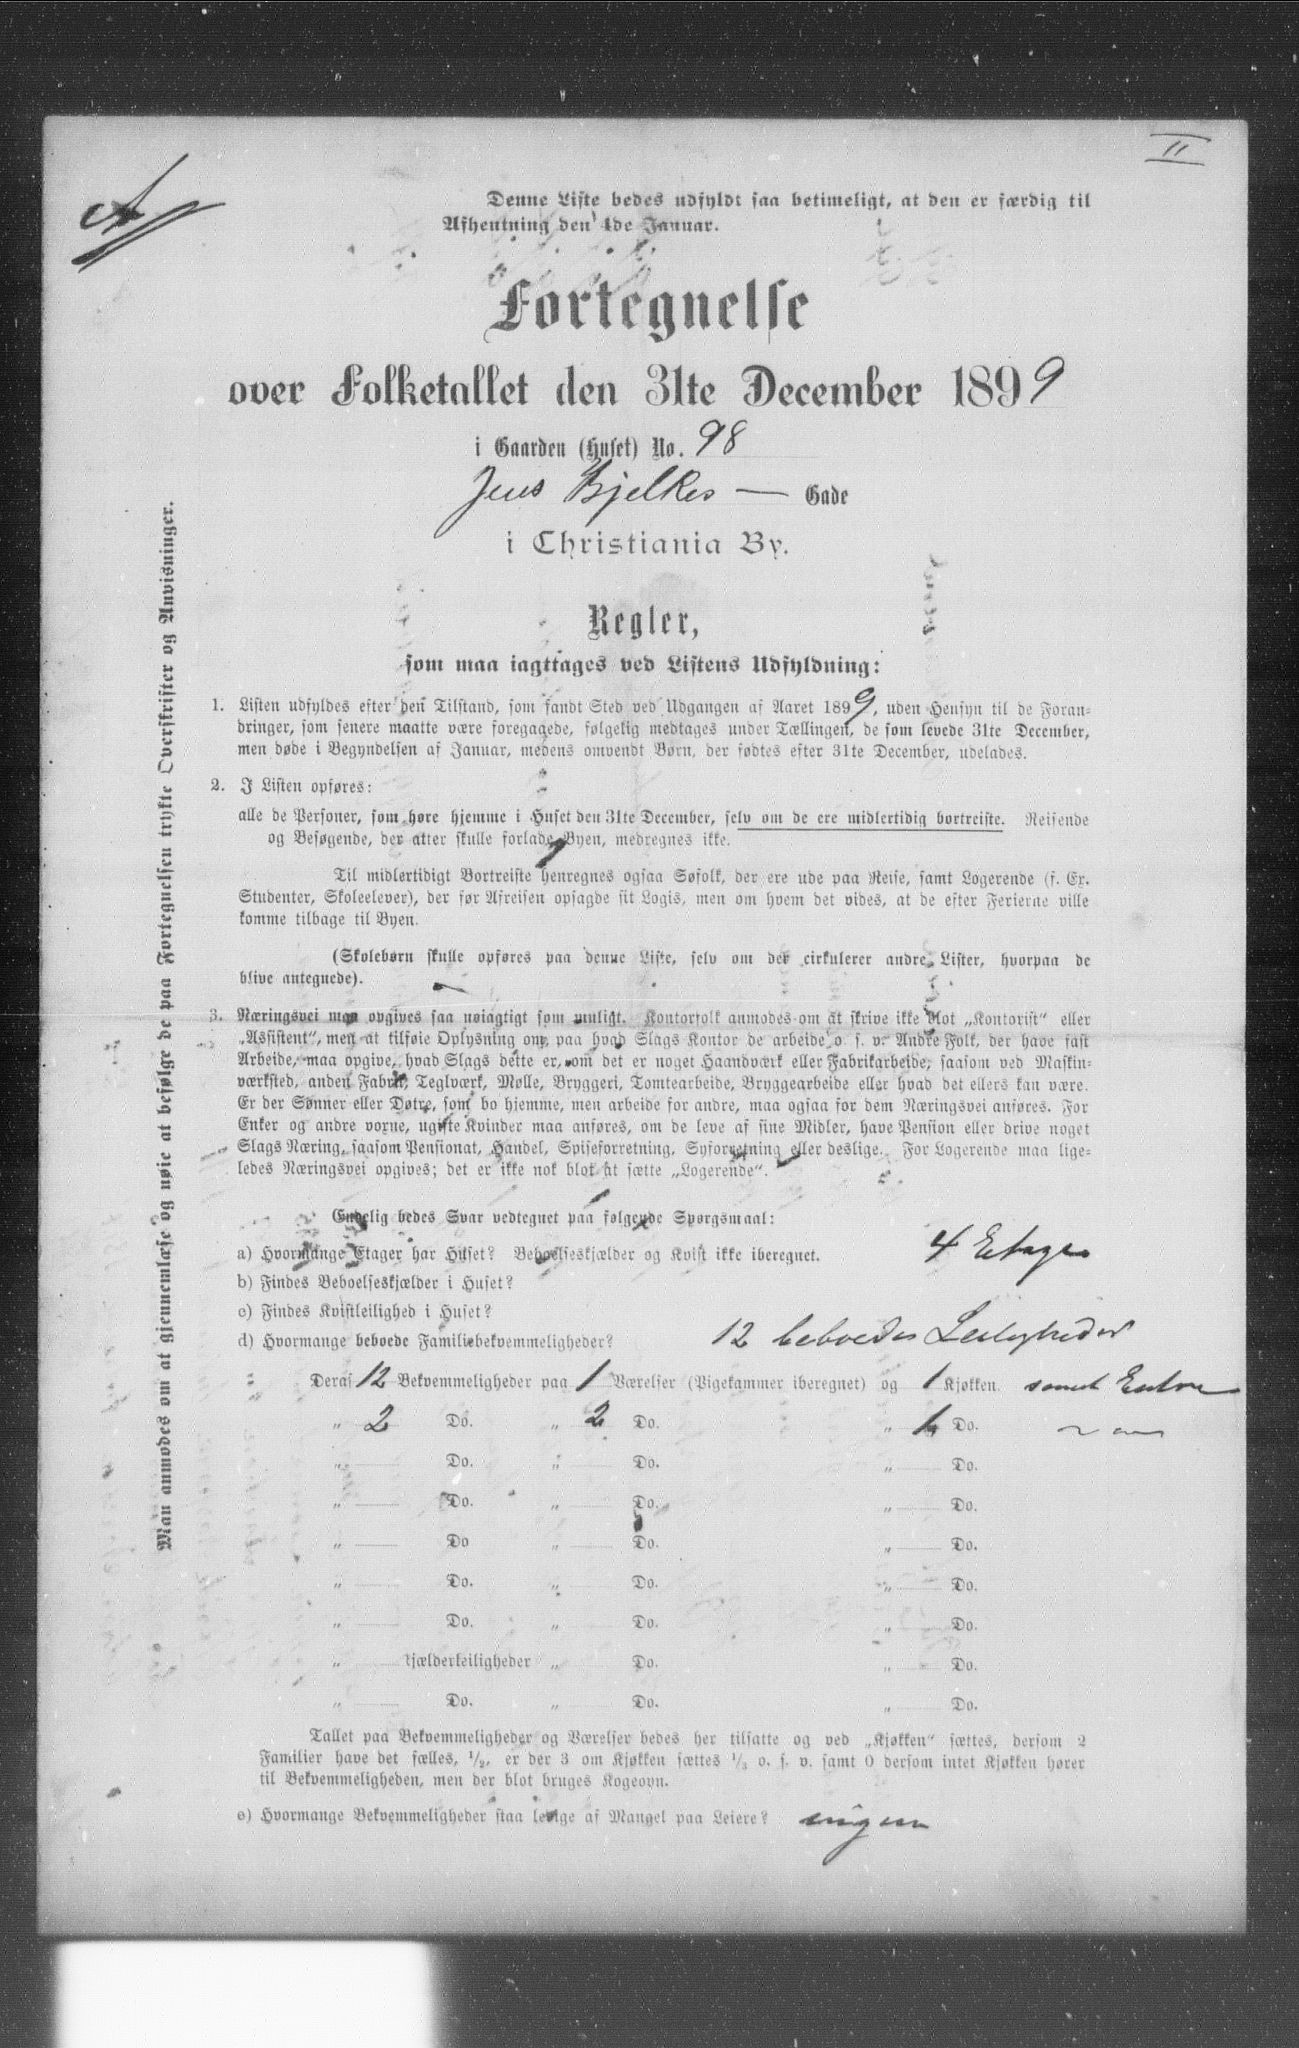 II
A
Denne Liste bedes udfyldt saa betimeligt, at den er færdig til
Afhentning den 4de Januar.
Fortegnelse
over Folketallet den 31te December 1899
i Gaarden (Huset) No. 98
Jens Bjelkes — Gade
i Christiania By.
Regler,
som maa iagttages ved Listens Udfyldning:
1. Listen udfyldes efter den Tilstand, som fandt Sted ved Udgangen af Aaret 1899, uden Hensyn til de Foran-
dringer, som senere maatte være foregagede, følgelig medtages under Tællingen, de som levede 31te December,
men døde i Begyndelsen af Januar, medens omvendt Børn, der fødtes efter 31te December, udelades.
2. I Listen opføres:
alle de Personer, som høre hjemme i Huset den 31te December, selv om de ere midlertidig bortreiste. Reisende
og Besøgende, der atter skulle forlade Byen, medregnes ikke.
Til midlertidigt Bortreiste henregnes ogsaa Søfolk, der ere ude paa Reise, samt Logerende (f. Ex.
Studenter, Skoleelever), der før Afreisen opsagde sit Logis, men om hvem det vides, at de efter Ferierne ville
komme tilbage til Byen.
(Skolebørn skulle opføres paa denne Liste, selv om der cirkulerer andre Lister, hvorpaa de
blive antegnede).
3. Næringsvei maa opgives saa nøiagtigt som muligt. Kontorfolk anmodes om at skrive ikke blot „Kontorist“ eller
„Assistent“, men at tilføie Oplysning om, paa hvad Slags Kontor de arbeide o. s. v. Andre Folk, der have fast
Arbeide, maa opgive, hvad Slags dette er, om det er noget Haandværk eller Fabrikarbeide, saasom ved Maskin-
værksted, anden Fabrik, Teglværk, Mølle, Bryggeri, Tomtearbeide, Bryggearbeide eller hvad det ellers kan være.
Er der Sønner eller Døtre, som bo hjemme, men arbeide for andre, maa ogsaa for dem Næringsvei anføres. For
Enker og andre voxne, ugifte Kvinder maa anføres, om de leve af sine Midler, have Pension eller drive noget
Slags Næring, saasom Pensionat, Handel, Spiseforretning, Syforretning eller deslige. For Logerende maa lige-
ledes Næringsvei opgives; det er ikke nok blot at sætte „Logerende“.
Endelig bedes Svar vedtegnet paa følgende Spørgsmaal:
a) Hvormange Etager har Huset? Beboelseskjælder og Kvist ikke iberegnet. 4 Etager
b) Findes Beboelseskjælder i Huset?
c) Findes Kvistleilighed i Huset?
d) Hvormange beboede Familiebekvemmeligheder? 12 beboedes Leiligheder
Deraf 12 Bekvemmeligheder paa 1 Værelser (Pigekammer iberegnet) og 1 Kjøkken samt Entre
„ 2 Do. „ 2 Do. „ 1 Do.
„ Do. „ Do. „ Do.
„ Do. „ Do. „ Do.
„ Do „ Do. „ Do.
„ Do. „ Do. „ Do.
„ Do. „ Do. „ Do.
„ Kjælderleiligheder „ Do. „ Do.
„ Do. „ Do. „ Do.
Tallet paa Bekvemmeligheder og Værelser bedes her tilsatte og ved „Kjøkken“ sættes, dersom 2
Familier have det fælles, 1/2, er der 3 om Kjøkken sættes 1/3 o. s. v. samt 0 dersom intet Kjøkken hører
til Bekvemmeligheden, men der blot bruges Kogeovn.
e) Hvormange Bekvemmeligheder staa ledige af Mangel paa Leiere? ingen
Man anmodes om at gjennemlæse og nøie at befølge de paa Fortegnelsen trykte Overskrifter og Anvisninger.